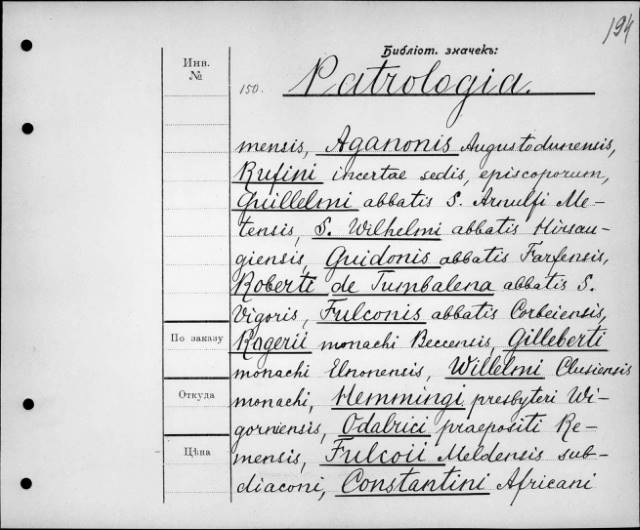 194
Библіот. значекъ:
Инв.
№
150. Patrologia.
mensis, Aganonis Augustodunensis,
Rufini incertae sedis, episcoporum,
Guillelmi abbatis S. Arnulfi Me-
tensis, S. Wilhelmi abbatis Hirsau-
giensis, Guidonis abbatis Farfensis,
Roberti de Tumbalena abbatis S.
Vigoris, Fulconis abbatis Corbeiensis,
По заказу
Rogerii monachi Beccensis, Gilleberti
monachi Elnonensis, Willelmi Clusiensis
Откуда
monachi, Hemmingi presbyteri Wi-
gorniensis, Odalrici praepositi Re-
Цѣна
mensis, Fulcoii Meldensis sub-
diaconi, Constantini Africani